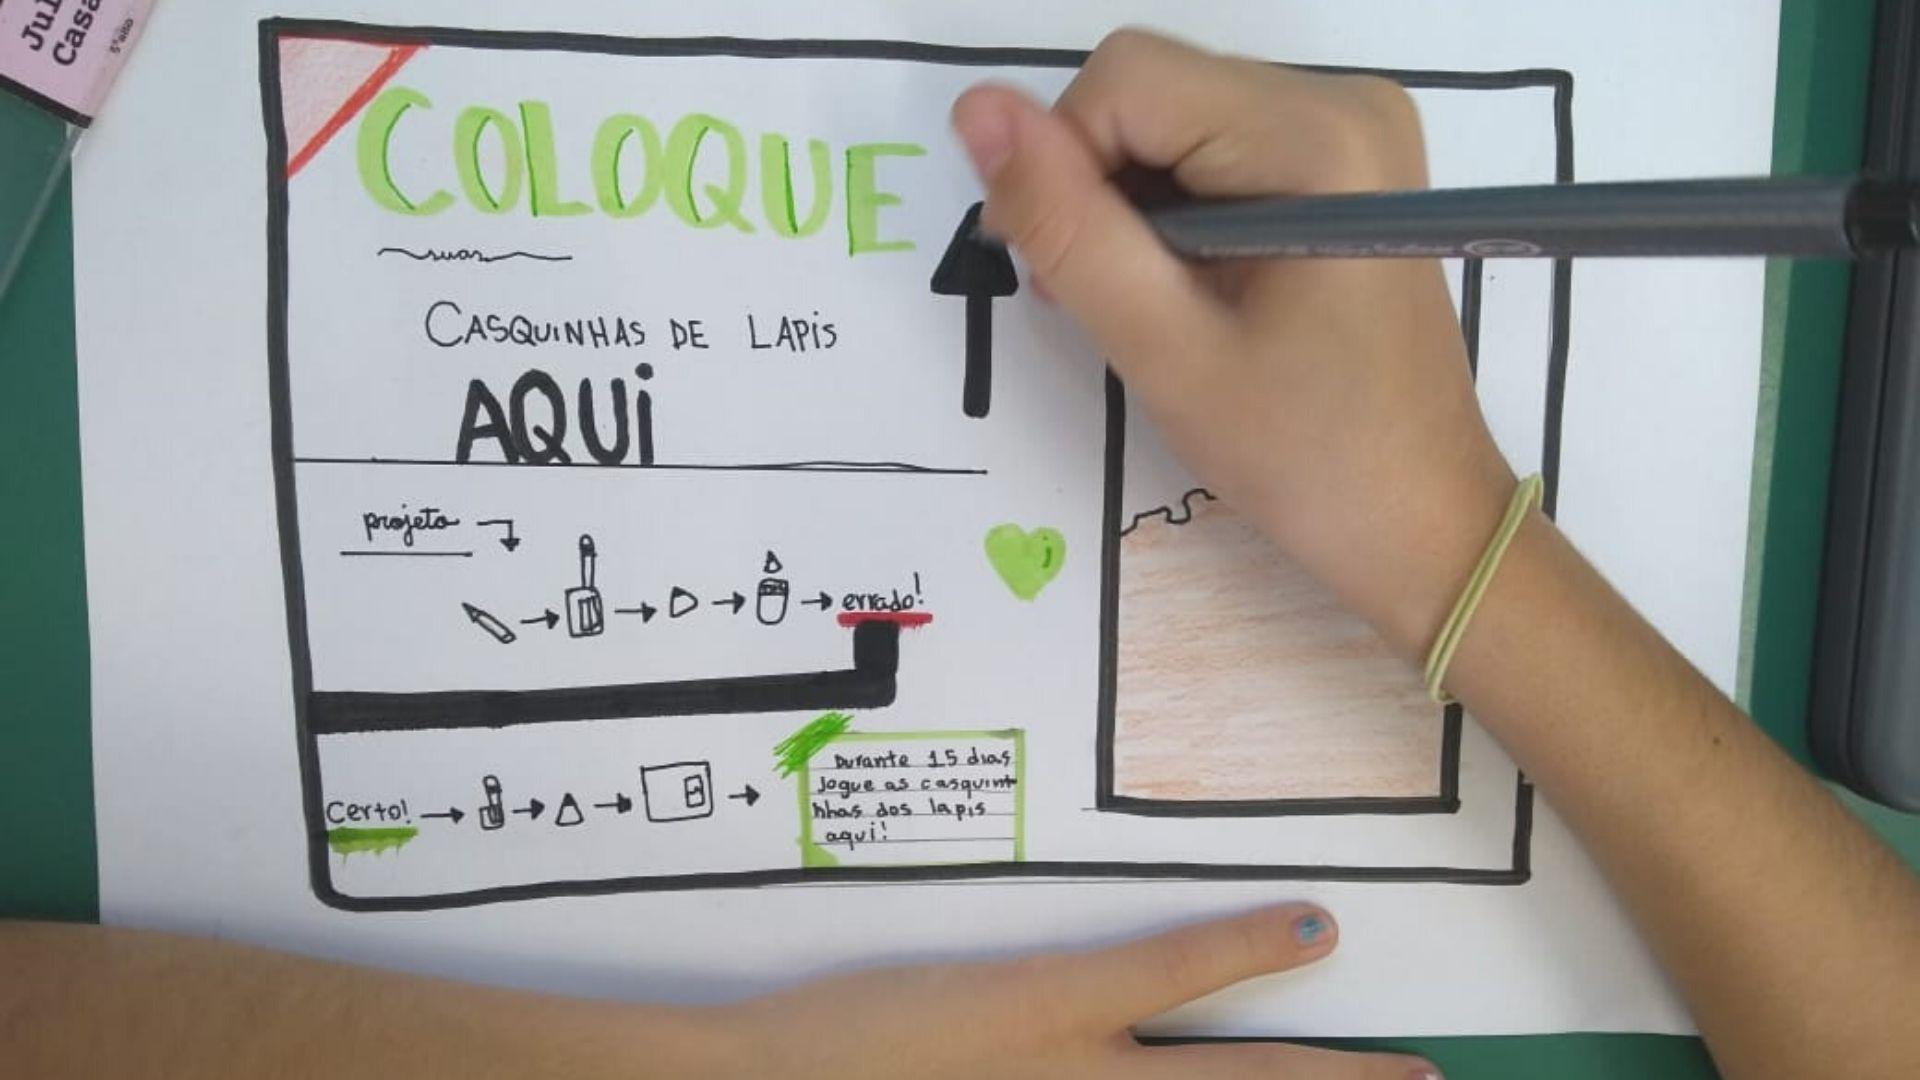 Jul
Casa
5º ano
COLOQUE
suas
CASQUINHAS DE LAPis
AQUi
projeto
errado!
Certo!
Durante 15 dias
Jogue as casquin
nhas dos lapis
aqui!